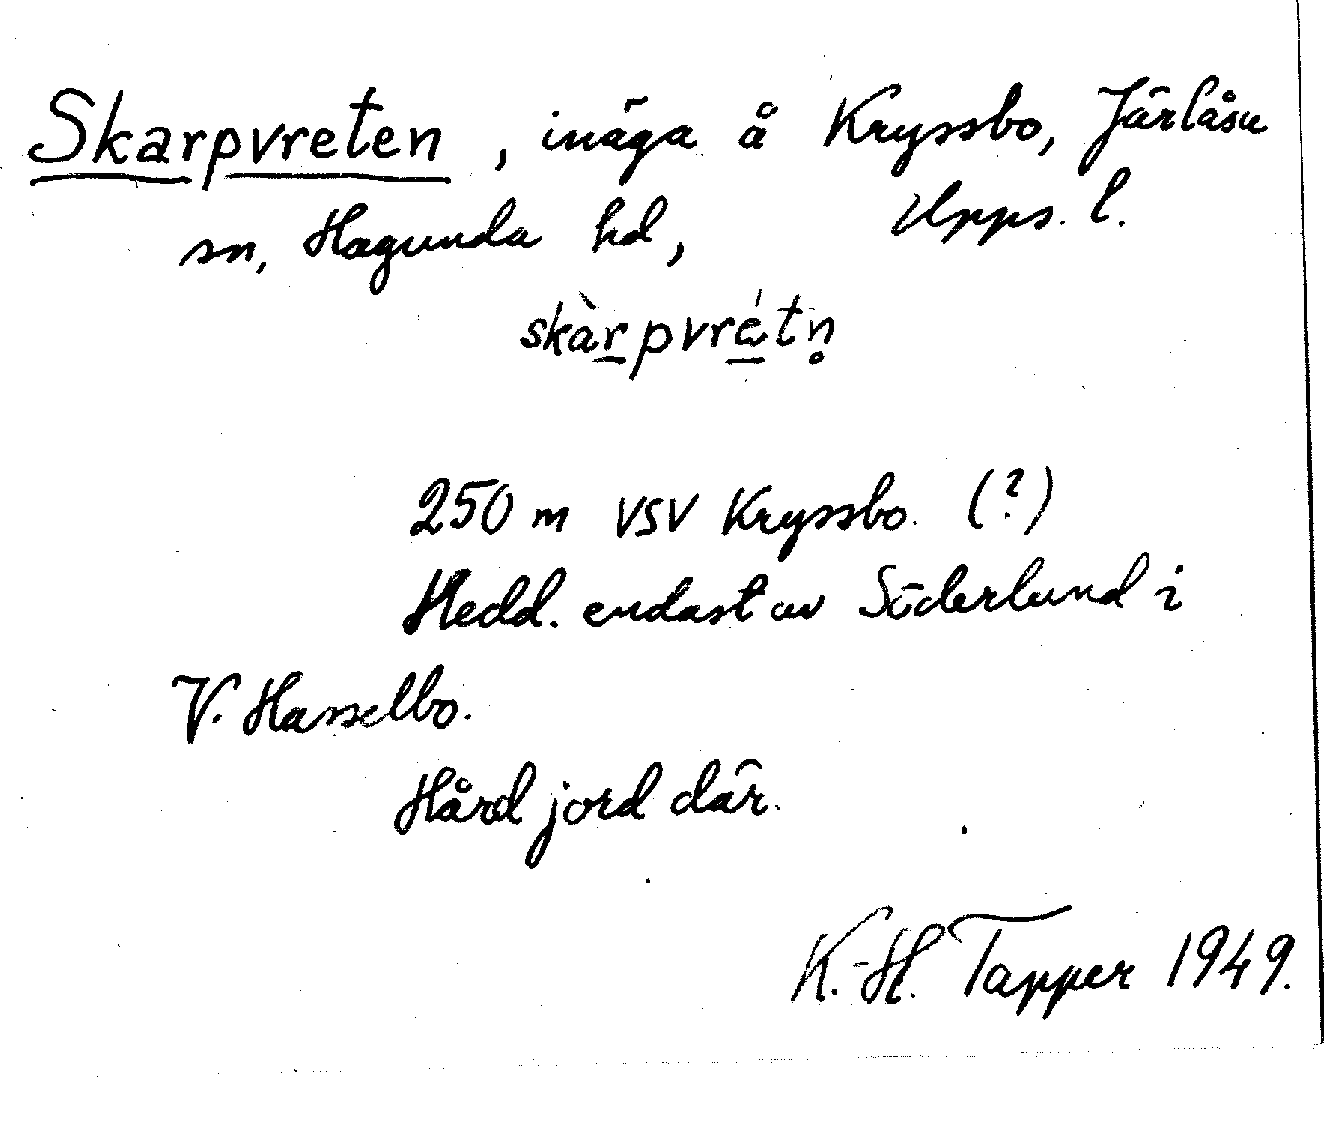 Skarpvreten, inäga å Kryssbo, Järlåsa
sn, Hagunda hd, Upps. l.
skàr̲pvré̲tn̥
250 m VSV Kryssbo. (?)
Hedd. endast av Söderlund i
V. Hasselbo.
Hård jord där.
K.-H. Tapper 1949.